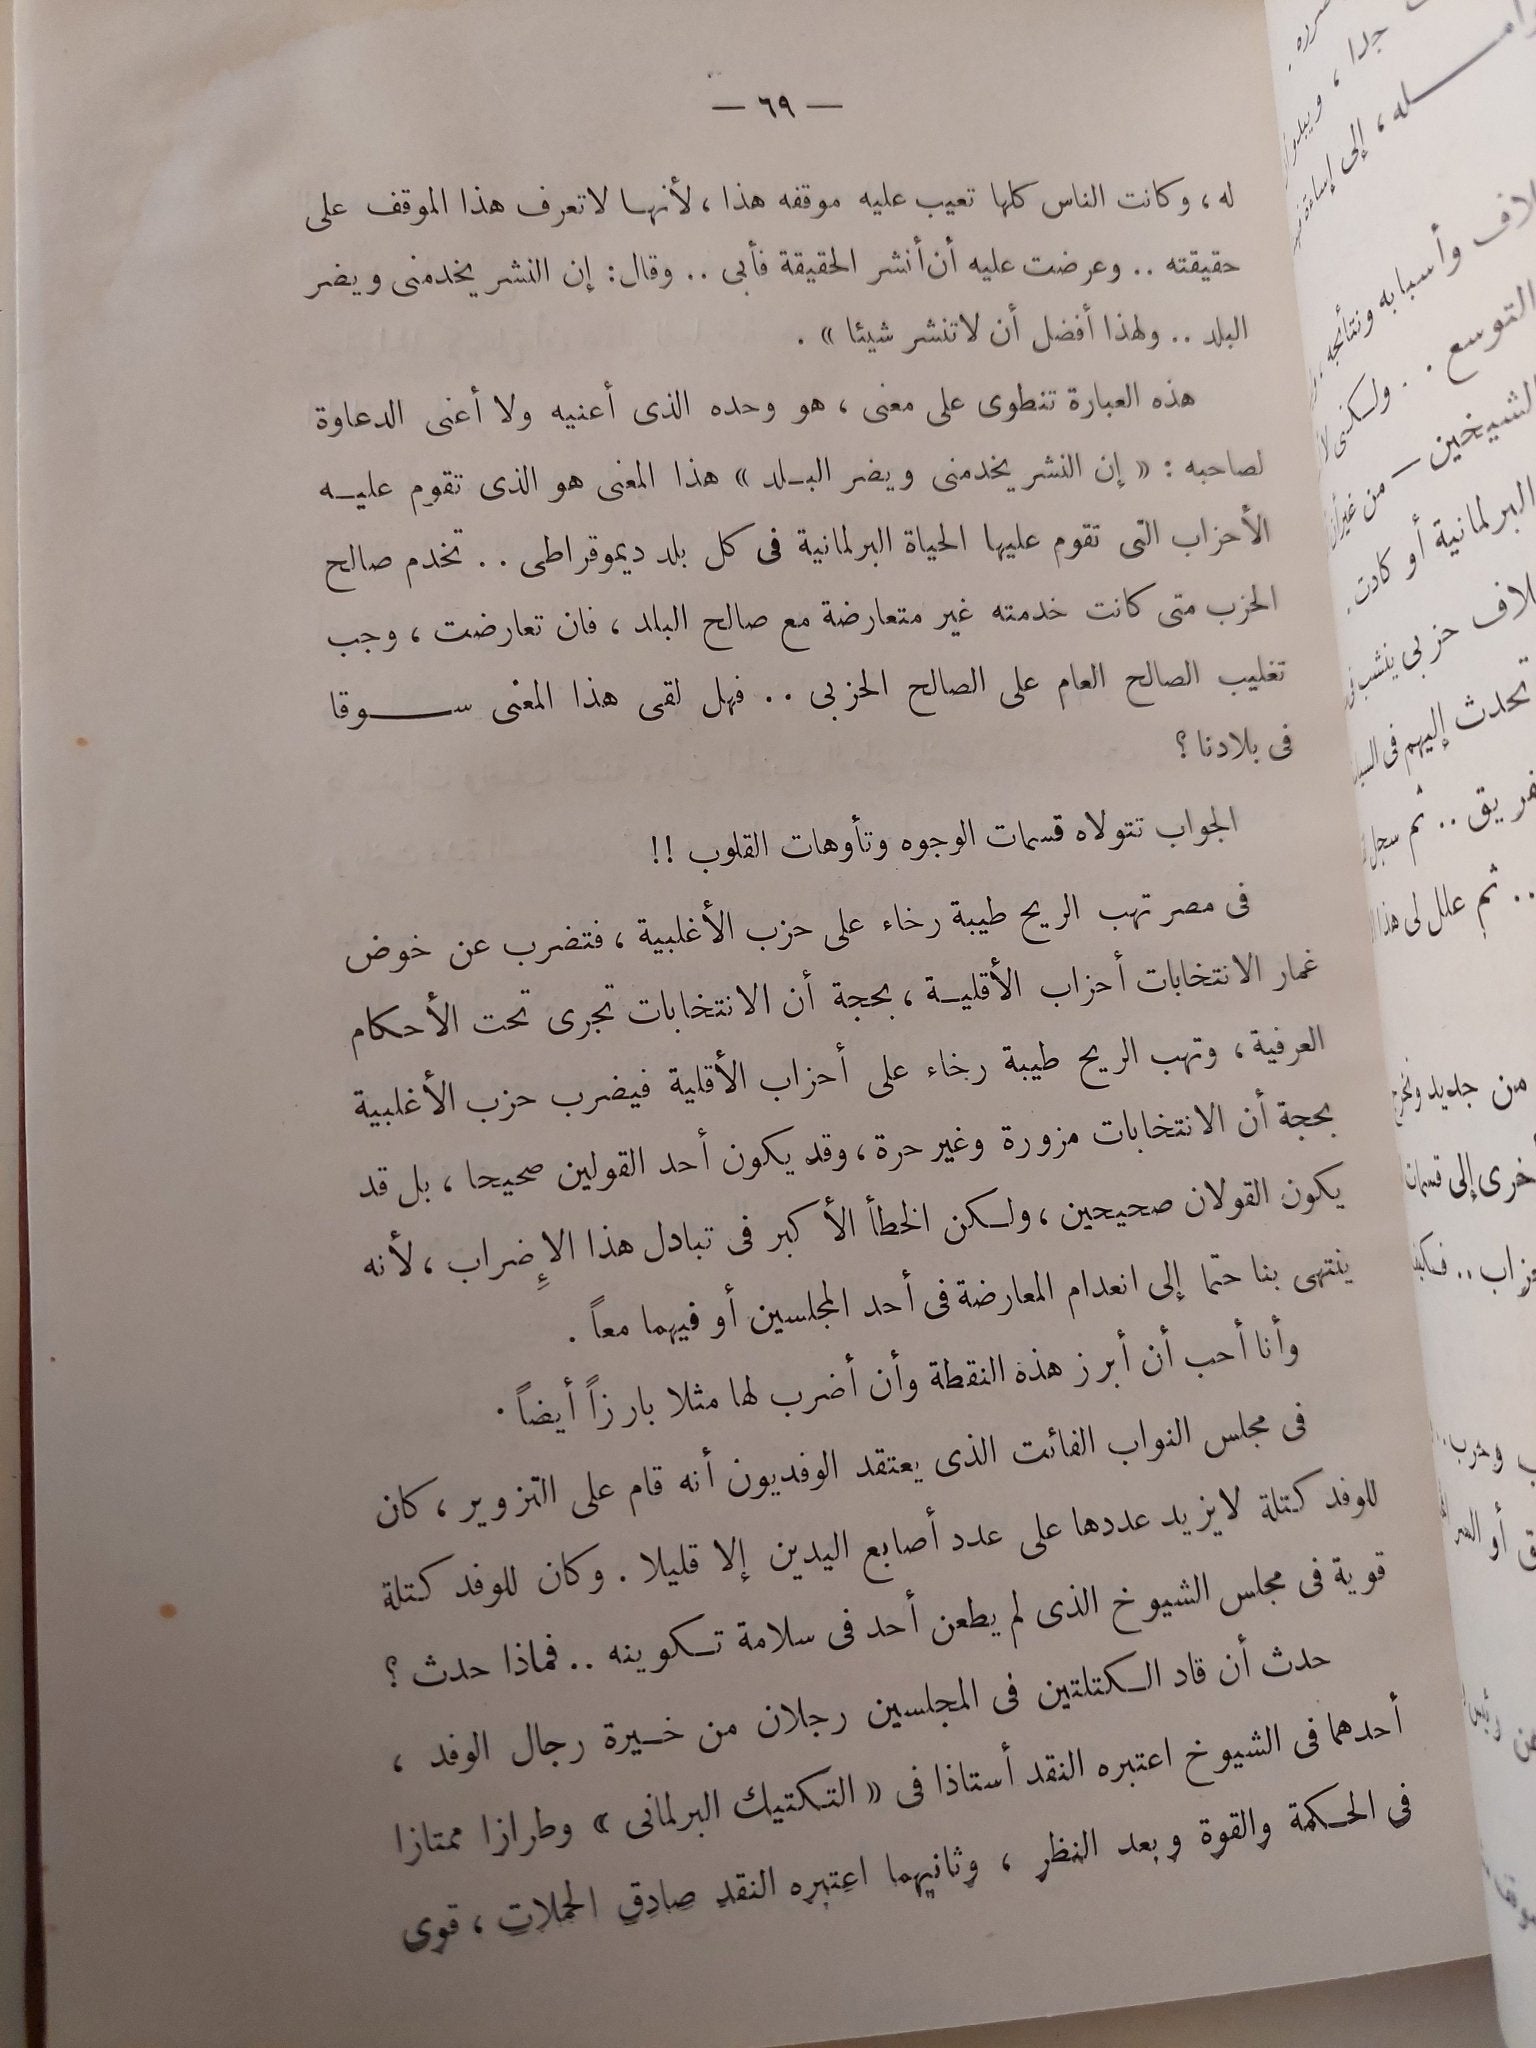 — ٦٩ —
له ، وكانت الناس كلها تعيب عليه موقفه هذا ، لأنها لا تعرف هذا الموقف على
حقيقته .. وعرضت عليه أن أنشر الحقيقة فأبى .. وقال : إن النشر يخدمنى ويضر
البلد .. ولهذا أفضل أن لا تنشر شيئا » .
هذه العبارة تنطوى على معنى ، هو وحده الذى أعنيه ولا أعنى الدعاوة
لصاحبه : « إن النشر يخدمنى ويضر البلد » هذا المعنى هو الذى تقوم عليه
الأحزاب التى تقوم عليها الحياة البرلمانية فى كل بلد ديموقراطى .. تخدم صالح
الحزب متى كانت خدمته غير متعارضة مع صالح البلد ، فان تعارضت ، وجب
تغليب الصالح العام على الصالح الحزبى .. فهل لقى هذا المعنى سوقا
فى بلادنا ؟
الجواب تتولاه قسمات الوجوه وتأوهات القلوب !!
فى مصر تهب الريح طيبة رخاء على حزب الأغلبية ، فتضرب عن خوض
غمار الانتخابات أحزاب الأقلية ، بحجة أن الانتخابات تجرى تحت الأحكام
العرفية ، وتهب الريح طيبة رخاء على أحزاب الأقلية فيضرب حزب الأغلبية
بحجة أن الانتخابات مزورة وغير حرة ، وقد يكون أحد القولين صحيحا ، بل قد
يكون القولان صحيحين ، ولكن الخطأ الأكبر فى تبادل هذا الإضراب ، لأنه
ينتهى بنا حتما إلى انعدام المعارضة فى أحد المجلسين أو فيهما معاً .
وأنا أحب أن أبرز هذه النقطة وأن أضرب لها مثلا بارزاً أيضاً .
فى مجلس النواب الفائت الذى يعتقد الوفديون أنه قام على التزوير ، كان
للوفد كتلة لا يزيد عددها على عدد أصابع اليدين إلا قليلا . وكان للوفد كتلة
قوية فى مجلس الشيوخ الذى لم يطعن أحد فى سلامة تكوينه .. فماذا حدث ؟
حدث أن قاد الكتلتين فى المجلسين رجلان من خيرة رجال الوفد ،
أحدهما فى الشيوخ اعتبره النقد أستاذا فى « التكتيك البرلمانى » وطرازا ممتازا
فى الحكمة والقوة وبعد النظر ، وثانيهما اعتبره النقد صادق الحملات ، قوى
جدا ، ويبدو
إلى إساءة
لاف وأسبابه ونتائجه ،
التوسع .. ولكنى
الشيخين — من غير أن
البرلمانية أو كادت .
حزبى ينشب فى
تحدث إليهم فى
.. ثم سجل
.. ثم علل لى هذا
من جديد
إلى قسمات